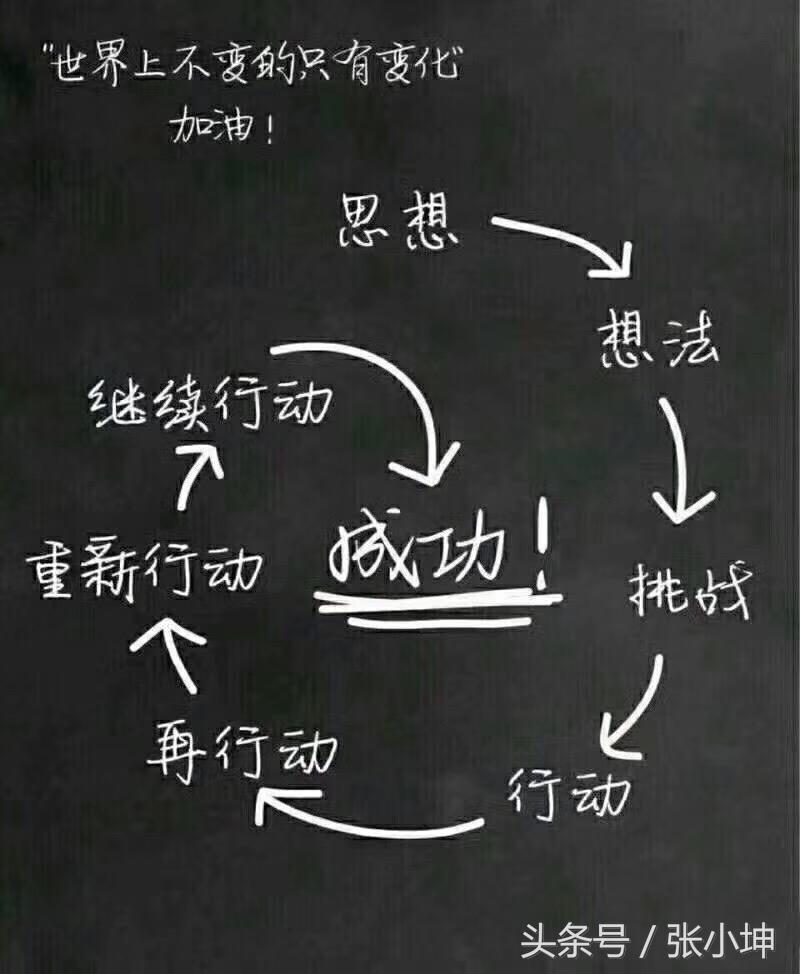 "世界上不变的只有变化"
加油！
思想
想法
继续行动
成功！
重新行动
挑战
再行动
行动
头条号 / 张小坤